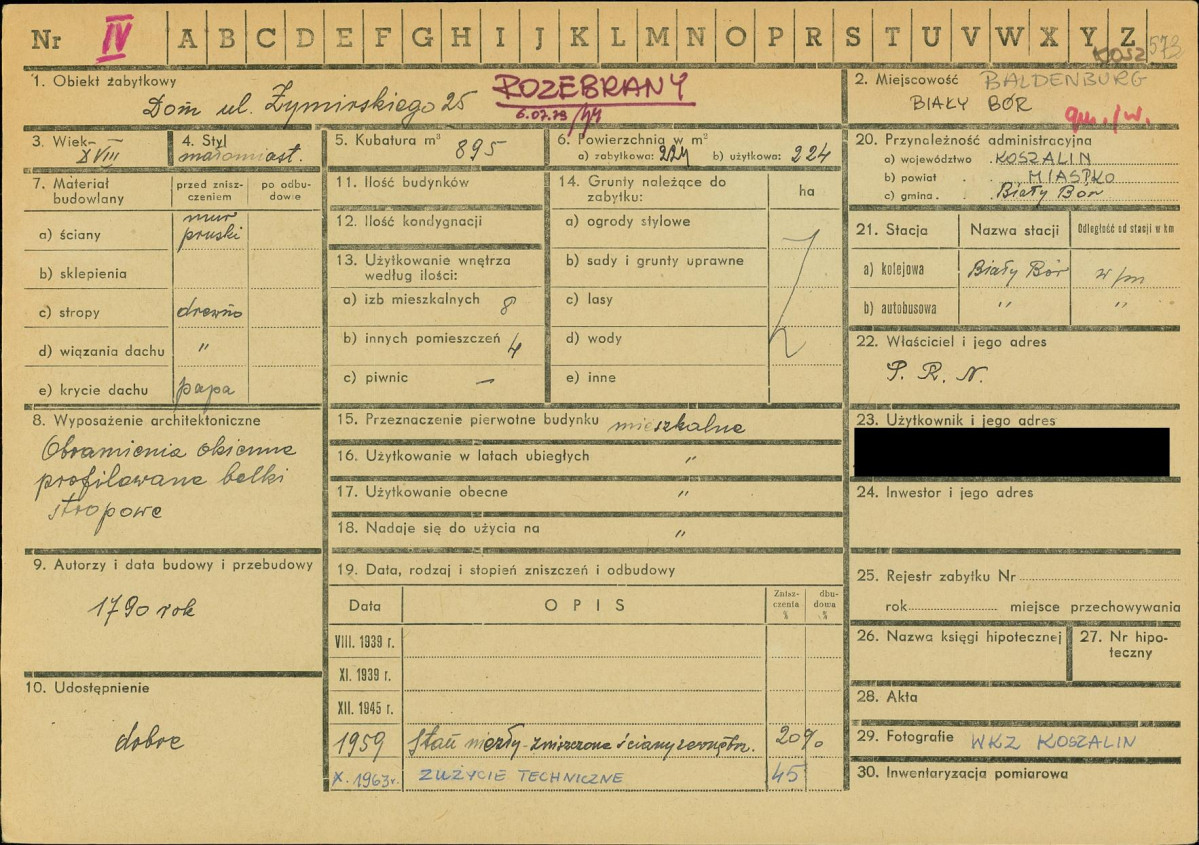 Nr IV A B C D E F G H I J K L M N O P R S T U V W X Y Z
KOSZ 573
1. Obiekt zabytkowy
Dom ul. Żymirskiego 25
ROZEBRANY
2. Miejscowość BALDENBURG
BIAŁY BÓR
gm./w.
3. Wiek XVIII
4. Styl małomiast.
5. Kubatura m³ 895
6. Powierzchnia w m²
a) zabytkowa: 224 b) użytkowa: 224
7. Materiał budowlany
przed zniszczeniem
po odbudowie
a) ściany mur pruski
b) sklepienia
c) stropy drewno
d) wiązania dachu "
e) krycie dachu papa
8. Wyposażenie architektoniczne
Obramienia okienne
profilowane belki
stropowe
9. Autorzy i data budowy i przebudowy
1790 rok
10. Udostępnienie
dobre
11. Ilość budynków
12. Ilość kondygnacji
13. Użytkowanie wnętrza
według ilości:
a) izb mieszkalnych 8
b) innych pomieszczeń 4
c) piwnic —
14. Grunty należące do
zabytku:
ha
a) ogrody stylowe
b) sady i grunty uprawne
c) lasy
d) wody
e) inne
15. Przeznaczenie pierwotne budynku mieszkalne
16. Użytkowanie w latach ubiegłych "
17. Użytkowanie obecne "
18. Nadaje się do użycia na "
19. Data, rodzaj i stopień zniszczeń i odbudowy
Data OPIS Zniszczenia % dbudowa %
VIII. 1939 r.
XI. 1939 r.
XII. 1945 r.
1959 Stan niezły - zniszczone ściany zewnętrz. 20%
X. 1963 r. ZUŻYCIE TECHNICZNE 45
20. Przynależność administracyjna
a) województwo KOSZALIN
b) powiat MIASTKO
c) gmina Biały Bór
21. Stacja Nazwa stacji Odległość od stacji w km
a) kolejowa Biały Bór w/m
b) autobusowa " "
22. Właściciel i jego adres
P. R. N.
23. Użytkownik i jego adres
24. Inwestor i jego adres
25. Rejestr zabytku Nr
rok miejsce przechowywania
26. Nazwa księgi hipotecznej
27. Nr hipoteczny
28. Akta
29. Fotografie WKZ KOSZALIN
30. Inwentaryzacja pomiarowa